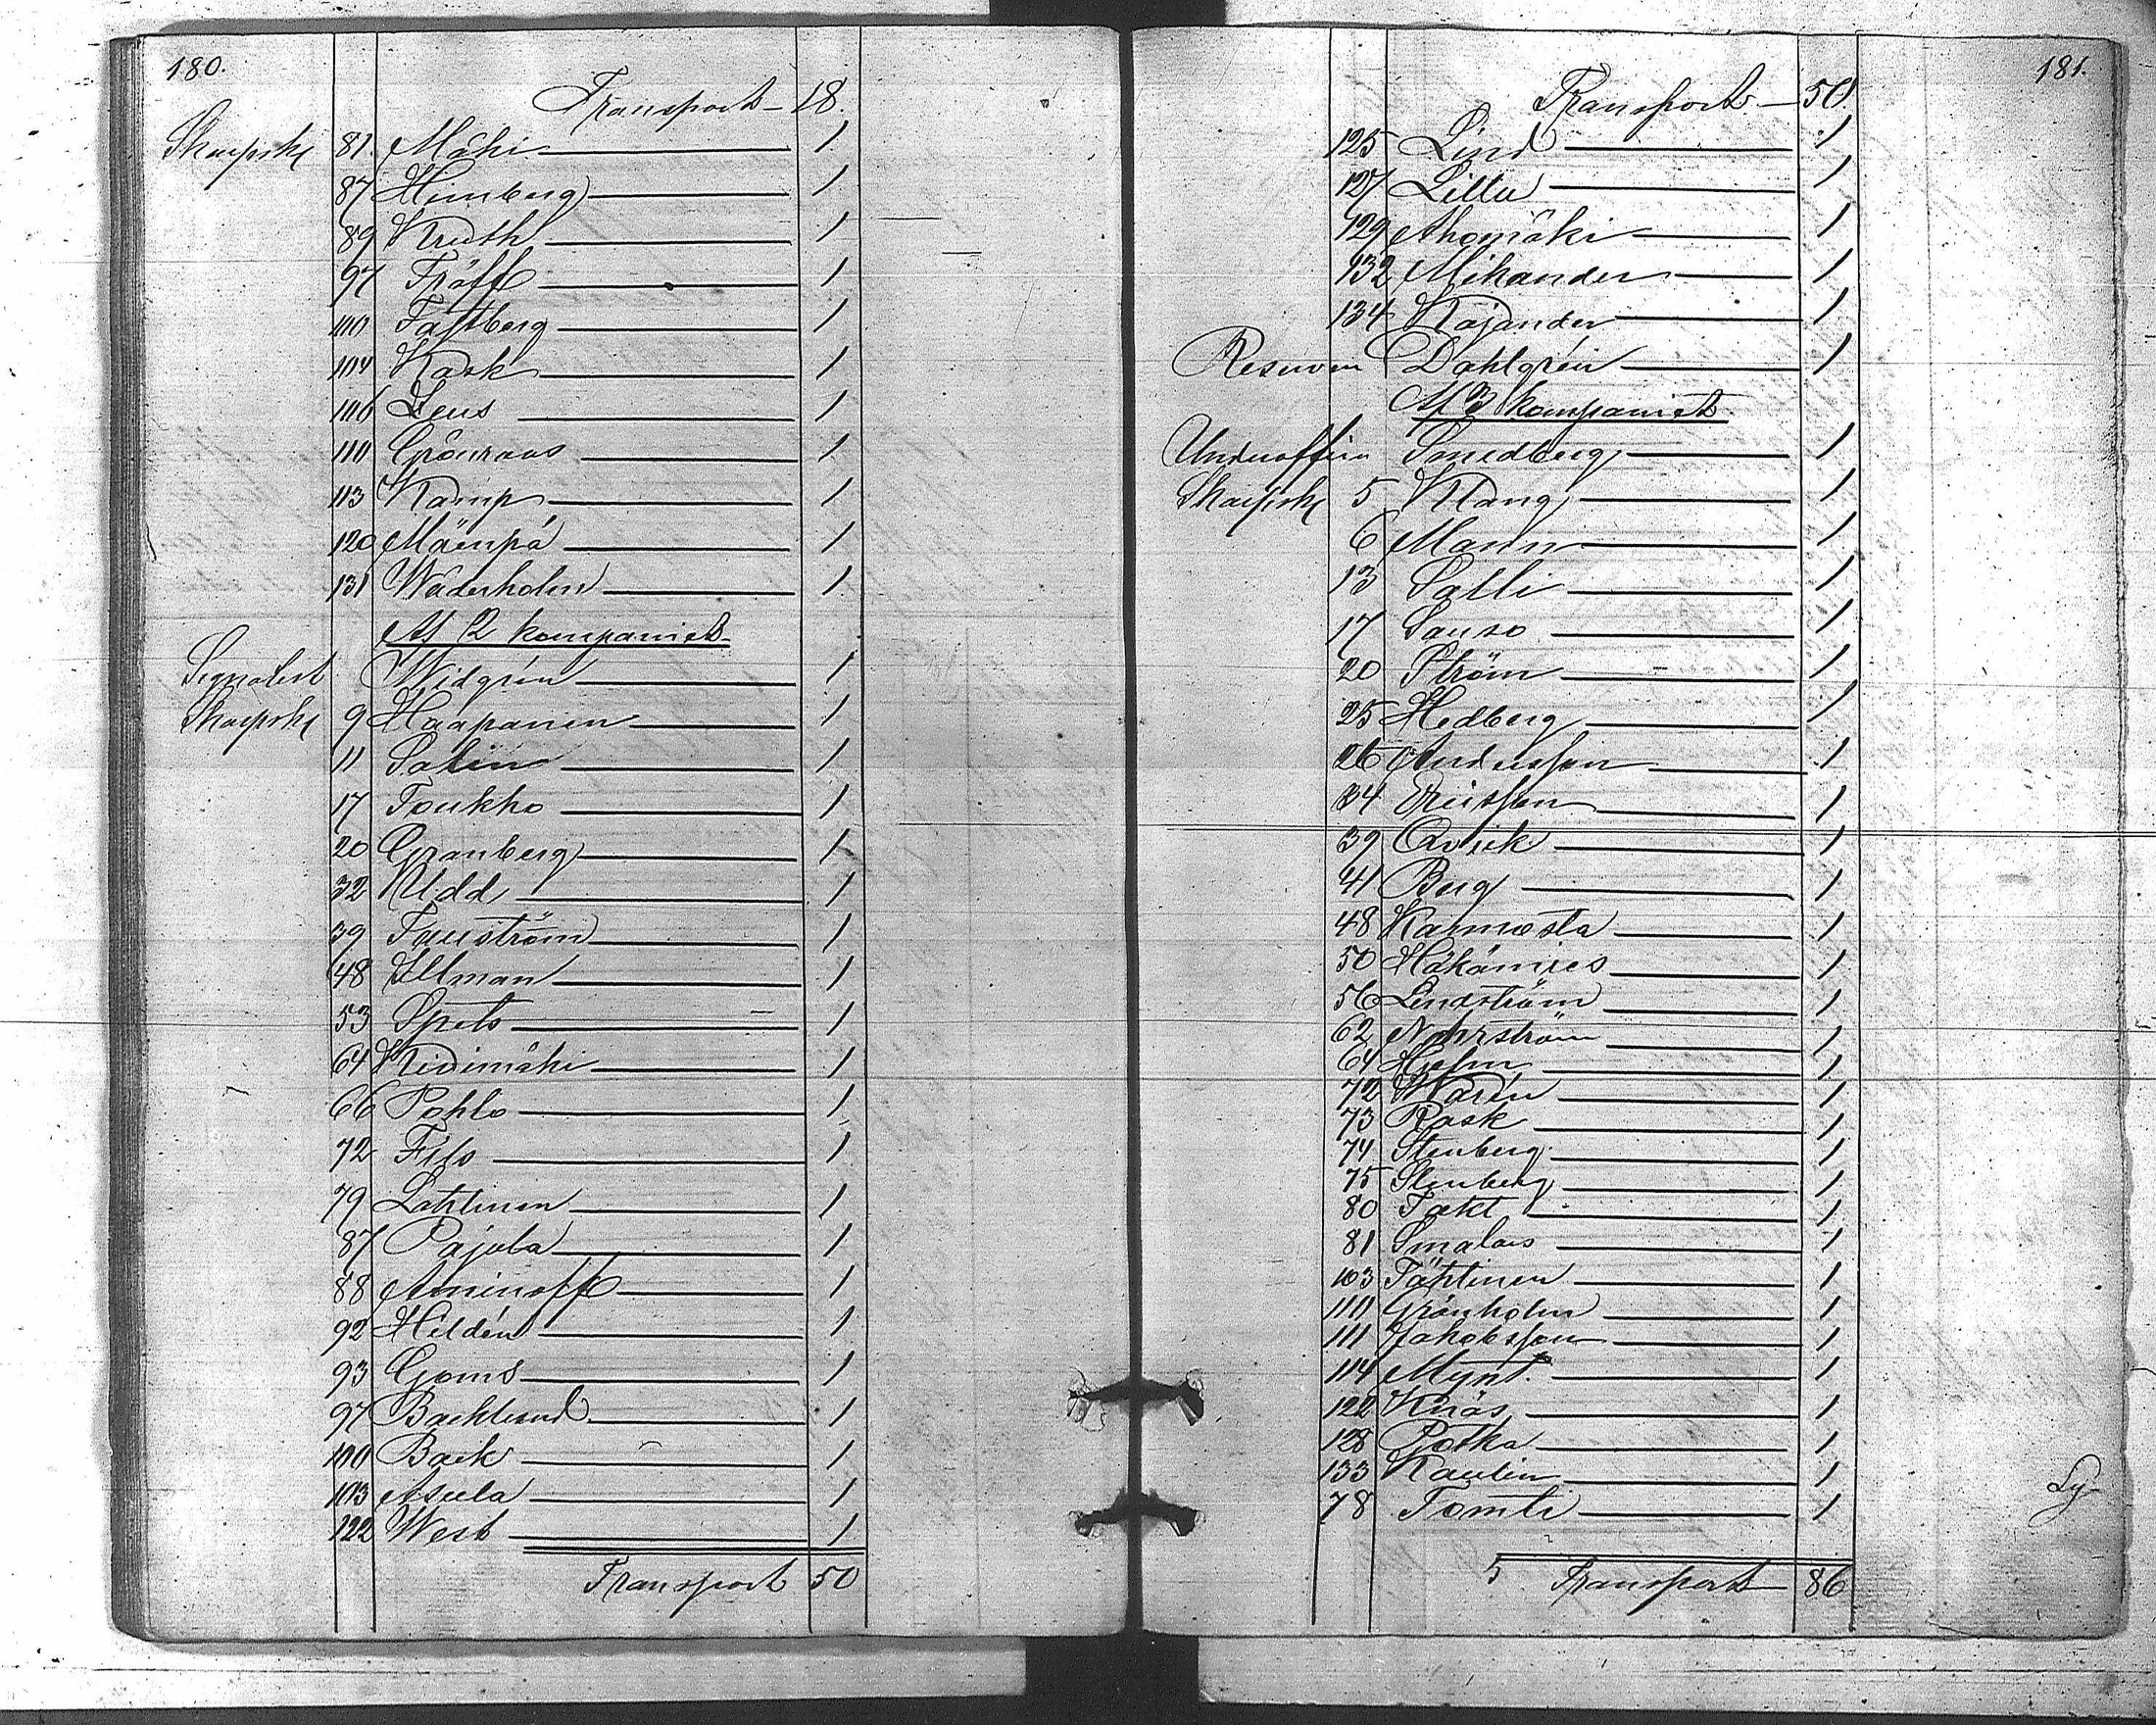 180.
Transport 18.
Skarpsk 81. Mäki 1
87 Himberg 1
89 Kruth 1
97 Träff 1
100 Fastberg 1
104 Kask 1
106 Leus 1
110 Grönroos 1
113 Kämp 1
120 Mäenpä 1
131 Waderholm 1
Af 2 kompaniet
Signalist Widgrén 1
Skarpsk 9 Haapanen 1
11 Salin 1
17 Toukko 1
20 Granberg 1
32 Udd 1
39 Fagerström 1
48 Illman 1
53 Spets 1
64 Kivimäki 1
66 Pohlo 1
72 Fils 1
79 Lahtinen 1
87 Pajula 1
88 Aminoff 1
92 Hildén 1
93 Goms 1
97 Backlund 1
100 Back 1
103 Asula 1
122 West 1
Transport 50
181.
Transport 50
125 Lind 1
127 Lilla 1
129 Ahomäki 1
132 Mikander 1
134 Kajander 1
Reserven Dahlgrén 1
Af 3 kompaniet
Underofficer Smedberg 1
Skarpsk 5 Klang 1
6 Mann 1
13 Salli 1
17 Sauso 1
20 Ström 1
25 Hedberg 1
26 Andersson 1
34 Ericsson 1
39 Qvick 1
41 Berg 1
48 Karmosta 1
50 Häkämies 1
56 Lindström 1
62 Nohrström 1
64 Holm 1
72 Warén 1
73 Rask 1
74 Stenberg 1
75 Stenberg 1
80 Takt 1
81 Smalars 1
103 Tähtinen 1
110 Grönholm 1
111 Jakobsson 1
114 Mynt. 1
122 Knös 1
128 Potka 1
133 Kaulin 1
78 Tomti 1
Transport 86
Ly-